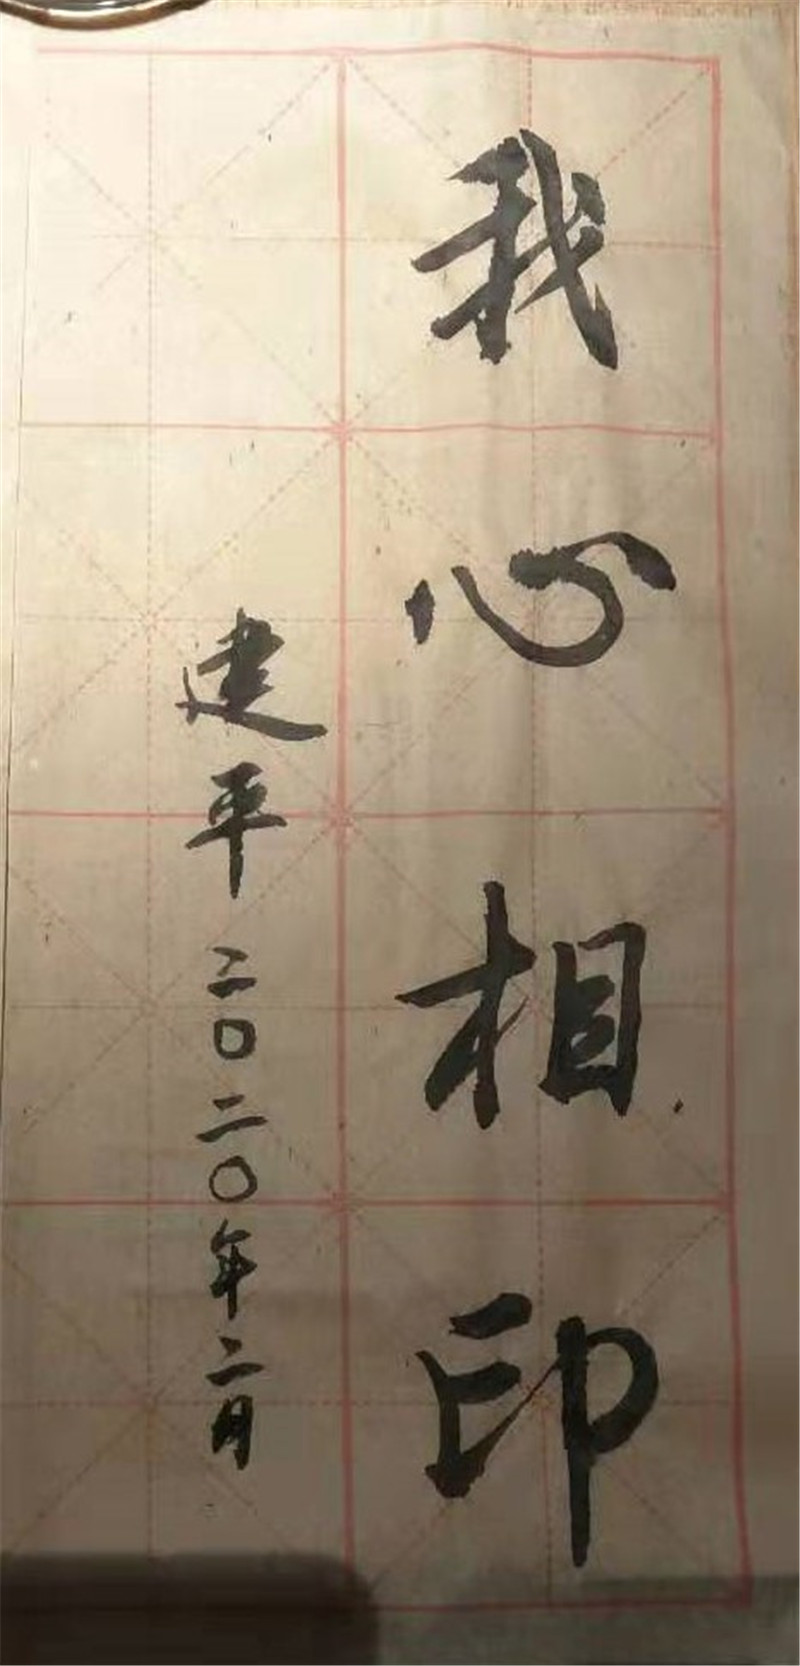 我心相印
建平二〇二〇年二月